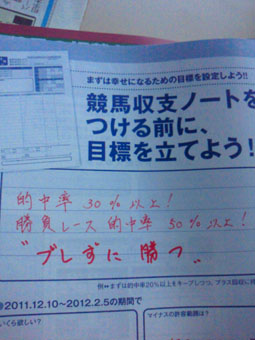 まずは幸せになるための目標を設定しよう!!
競馬収支ノートを
つける前に、
目標を立てよう!
的中率 30%以上!
勝負レース 的中率 50%以上!
"ブレずに勝つ"
例…まずは的中率20%以上をキープしつつ、プラス回収に
●2011.12.10〜2012.2.5の期間で
いくら欲しい?
マイナスの許容範囲は?